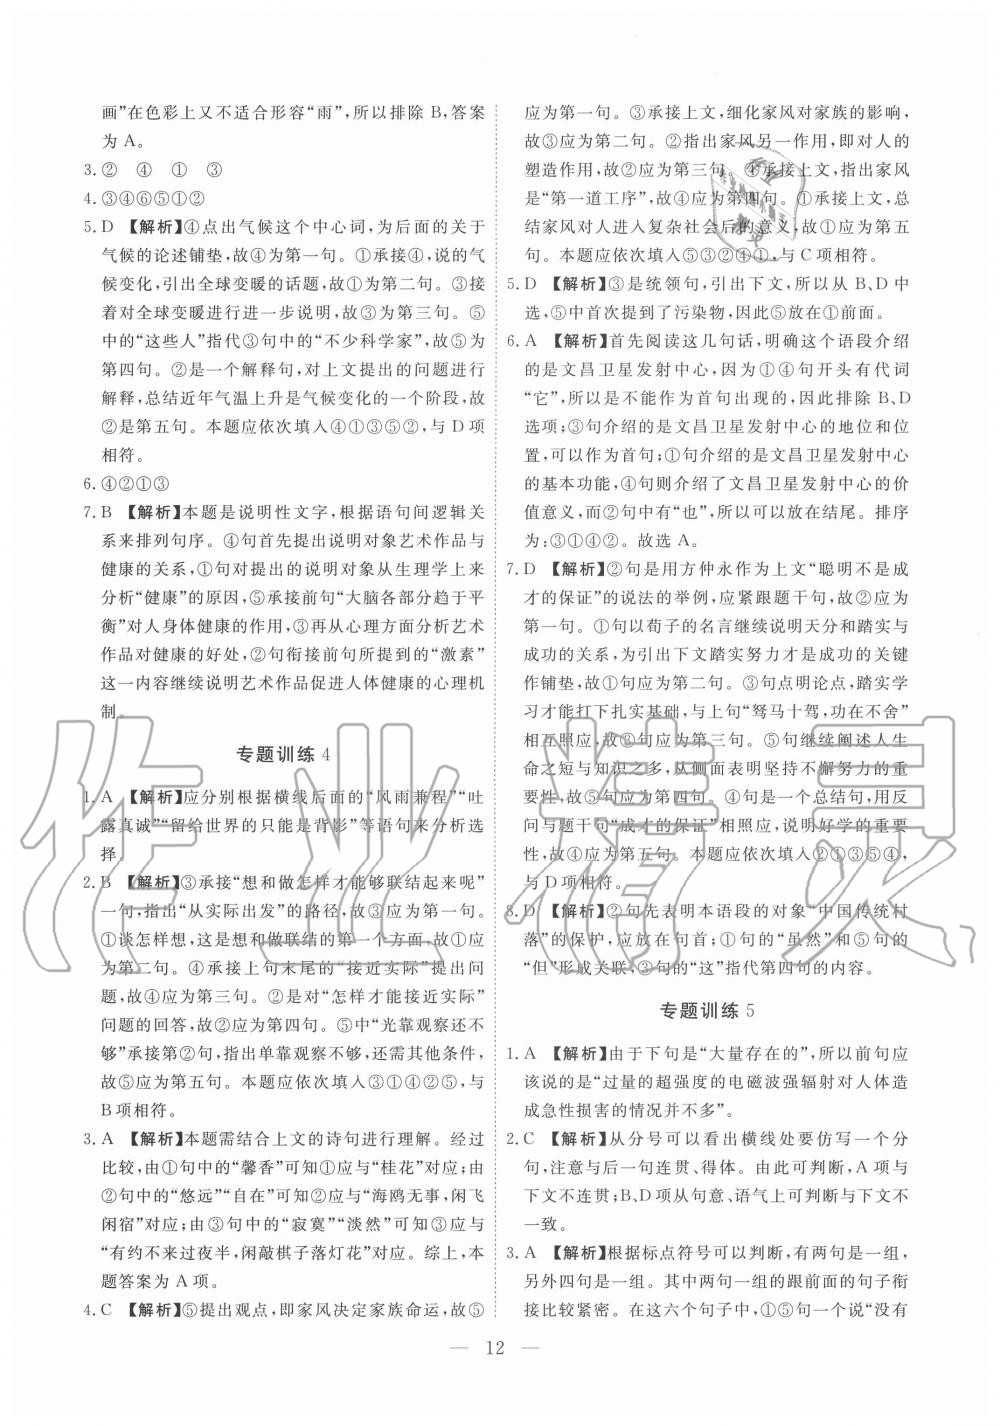 画”在色彩上又不适合形容“雨”,所以排除 B,答案
为 A。
3.② ④ ① ③
4.③④⑥⑤①②
5. D 【解析】④点出气候这个中心词,为后面的关于
气候的论述铺垫,故④为第一句。①承接④,说的气
候变化,引出全球变暖的话题,故①为第二句。③接
着对全球变暖进行进一步说明,故③为第三句。⑤
中的“这些人”指代③句中的“不少科学家”,故⑤为
第四句。②是一个解释句,对上文提出的问题进行
解释,总结近年气温上升是气候变化的一个阶段,故
②是第五句。本题应依次填入④①③⑤②,与 D 项
相符。
6.④②①③
7. B 【解析】本题是说明性文字,根据语句间逻辑关
系来排列句序。④句首先提出说明对象艺术作品与
健康的关系,①句对提出的说明对象从生理学上来
分析“健康”的原因,⑤承接前句“大脑各部分趋于平
衡”对人身体健康的作用,③再从心理方面分析艺术
作品对健康的好处,②句衔接前句所提到的“激素”
这一内容继续说明艺术作品促进人体健康的心理机
制。
专题训练 4
1. A 【解析】应分别根据横线后面的“风雨兼程”“吐
露真诚”“留给世界的只能是背影”等语句来分析选
择。
2. B 【解析】③承接“想和做怎样才能够联结起来呢”
一句,指出“从实际出发”的路径,故③应为第一句。
①谈怎样想,这是想和做联结的第一个方面,故①应
为第二句。④承接上句末尾的“接近实际”提出问
题,故④应为第三句。②是对“怎样才能接近实际”
问题的回答,故②应为第四句。⑤中“光靠观察还不
够”承接第②句,指出单靠观察不够,还需其他条件,
故⑤应为第五句。本题应依次填入③①④②⑤,与
B 项相符。
3. A 【解析】本题需结合上文的诗句进行理解。经过
比较,由①句中的“馨香”可知①应与“桂花”对应;由
②句中的“悠远”“自在”可知②应与“海鸥无事,闲飞
闲宿”对应;由③句中的“寂寞”“淡然”可知③应与
“有约不来过夜半,闲敲棋子落灯花”对应。综上,本
题答案为 A 项。
4. C 【解析】⑤提出观点,即家风决定家族命运,故⑤
应为第一句。③承接上文,细化家风对家族的影响,
故③应为第二句。②指出家风另一作用,即对人的
塑造作用,故②应为第三句。④承接上文,指出家风
是“第一道工序”,故④应为第四句。①承接上文,总
结家风对人进入复杂社会后的意义,故①应为第五
句。本题应依次填入⑤③②④①,与 C 项相符。
5. D 【解析】③是统领句,引出下文,所以从 B、D 中
选,⑤中首次提到了污染物,因此⑤放在①前面。
6. A 【解析】首先阅读这几句话,明确这个语段介绍
的是文昌卫星发射中心,因为①④句开头有代词
“它”,所以是不能作为首句出现的,因此排除 B、D
选项;③句介绍的是文昌卫星发射中心的地位和位
置,可以作为首句;①句介绍的是文昌卫星发射中心
的基本功能,④句则介绍了文昌卫星发射中心的价
值意义,而②句中有“也”,所以可以放在结尾。排序
为:③①④②。故选 A。
7. D 【解析】②句是用方仲永作为上文“聪明不是成
才的保证”的说法的举例,应紧跟题干句,故②应为
第一句。①句以荀子的名言继续说明天分和踏实与
成功的关系,为引出下文踏实努力才是成功的关键
作铺垫,故①句应为第二句。③句点明论点,踏实学
习才能打下扎实基础,与上句“驽马十驾,功在不舍”
相互照应,故③句应为第三句。⑤句继续阐述人生
命之短与知识之多,从侧面表明坚持不懈努力的重
要性,故⑤句应为第四句。④句是一个总结句,用反
问与题干句“成才的保证”相照应,说明好学的重要
性,故④应为第五句。本题应依次填入②①③⑤④,
与 D 项相符。
8. D 【解析】②句先表明本语段的对象“中国传统村
落”的保护,应放在句首;①句的“虽然”和⑤句的
“但”形成关联,③句的“这”指代第四句的内容。
专题训练 5
1. A 【解析】由于下句是“大量存在的”,所以前句应
该说的是“过量的超强度的电磁波强辐射对人体造
成急性损害的情况并不多”。
2. C 【解析】从分号可以看出横线处要仿写一个分
句,注意与后一句连贯、得体。由此可判断,A 项与
下文不连贯;B、D 项从句意、语气上可判断与下文不
一致。
3. A 【解析】根据标点符号可以判断,有两句是一组,
另外四句是一组。其中两句一组的跟前面的句子衔
接比较紧密。在这六个句子中,①⑤句一个说“没有
— 12 —
作业精灵
作业精灵